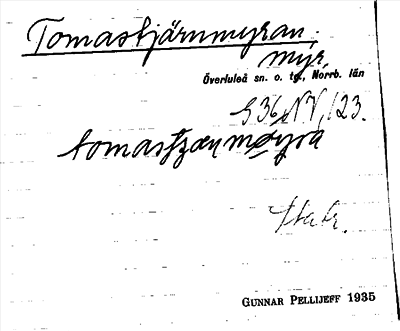 Tomastjärnmyran,
myr,
Överluleå sn. o. tg., Norrb. län
G 36 NV, 123.
tomastʒæṇmøyra
GUNNAR PELLIJEFF 1935